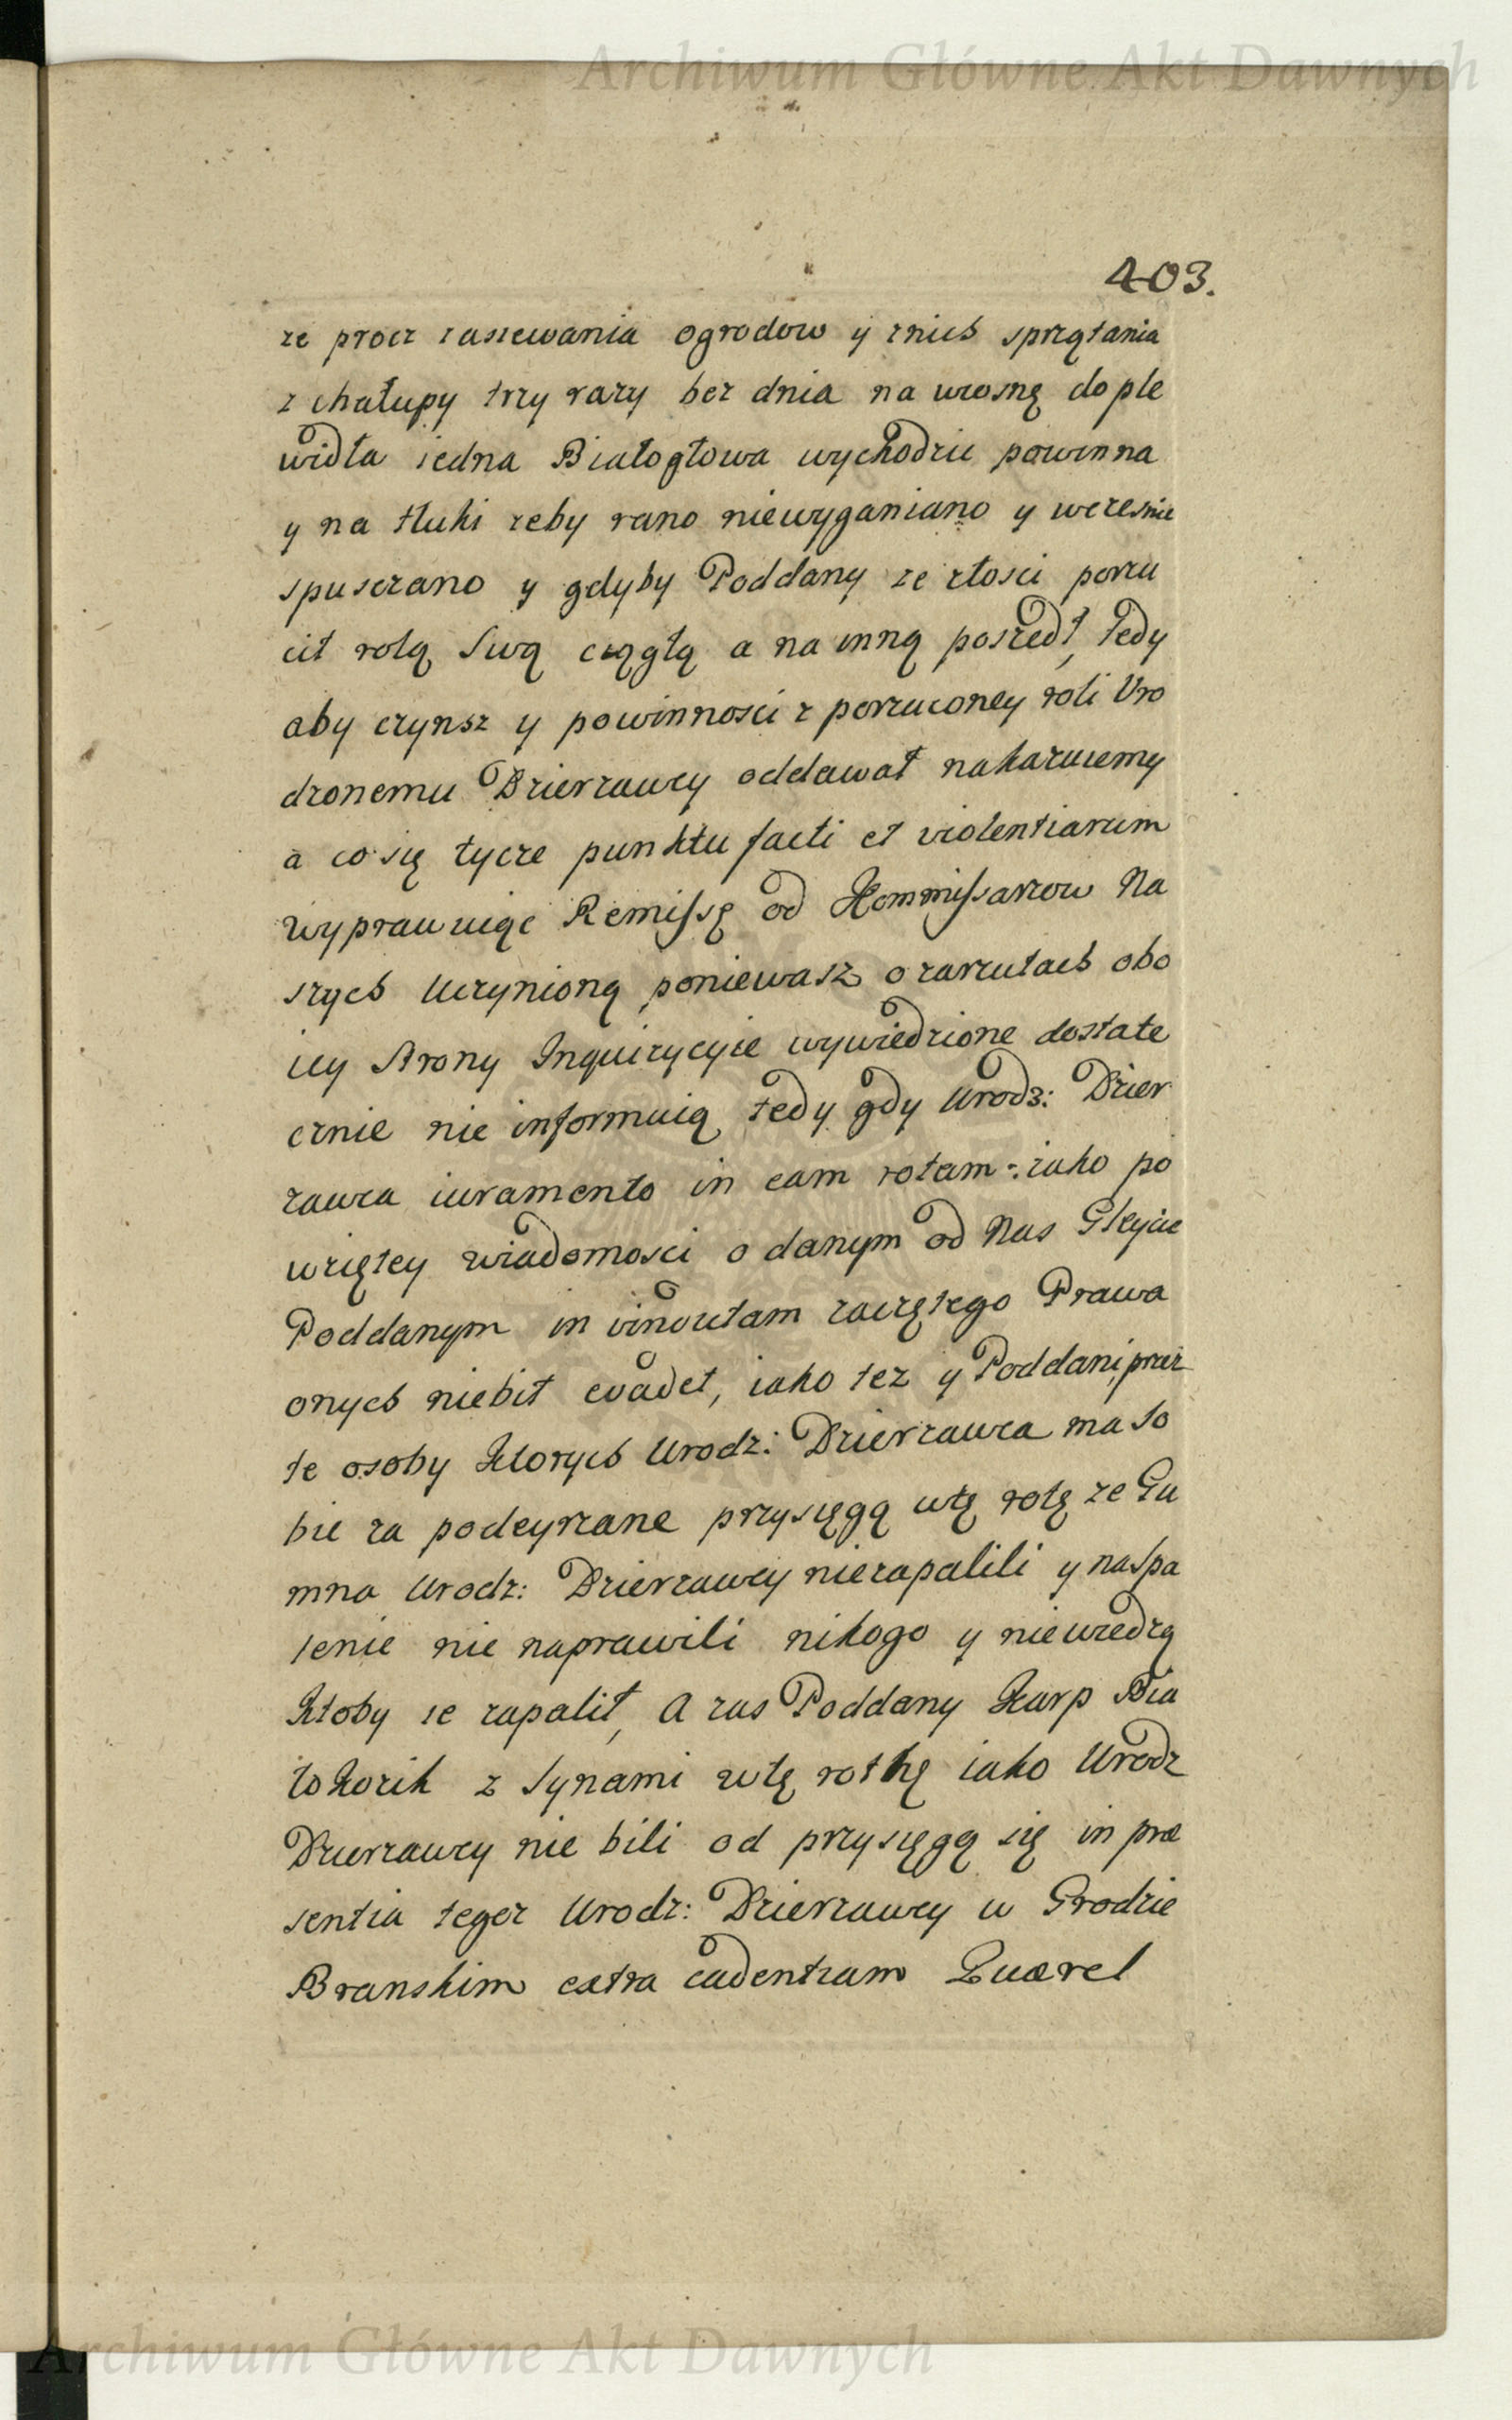 Archiwum Główne Akt Dawnych
403.
ze procz zasiewania ogrodow y znich sprzątania
z chałupy trzy razy bez dnia na wiosnę do ple
widła iedna Białogłowa wychodzic powinna
y na tłuki zeby rano niewyganiano y wczesnie
spuszczano y gdyby Poddany ze złosci porzu
cił rolą Swą ciągłą a na inną poszedł, tedy
aby czynsz y powinnosci z porzuconey roli Uro
dzonemu Dzierzawcy oddawał nakazuiemy
a co się tycze punktu facti et violentiarum
wyprawuiąc Remissę od Kommissarzow Na
szych Uczynioną poniewasz o zarzutach obo
iey Strony Inquizycyie wywiedzione dostate
cznie nie informuią tedy gdy Urodz: Dzier
zawca iuramento in eam rotam: iako po
wziętey wiadomosci o danym od Nas Gleycie
Poddanym in vim zaczętego Prawa
onych niebił evadet, iako tez y Poddani, przez
te osoby Ktorych Urodz: Dzierzawca ma So
bie za podeyrzane przysięgą wtę rotę ze Gu
mna Urodz: Dzierzawcy niezapalili y na Spa
lenie nie naprawili nikogo y niewiedzą
Ktoby ie zapalił, A zas Poddany Karp Bia
łokozik z Synami wtę rotkę iako Urodz
Dzierzawcy nie bili od przysięgą się in præ
sentia tegoz Urodz: Dzierzawcy w Grodzie
Branskim extra cadentiam Quærel
Archiwum Główne Akt Dawnych